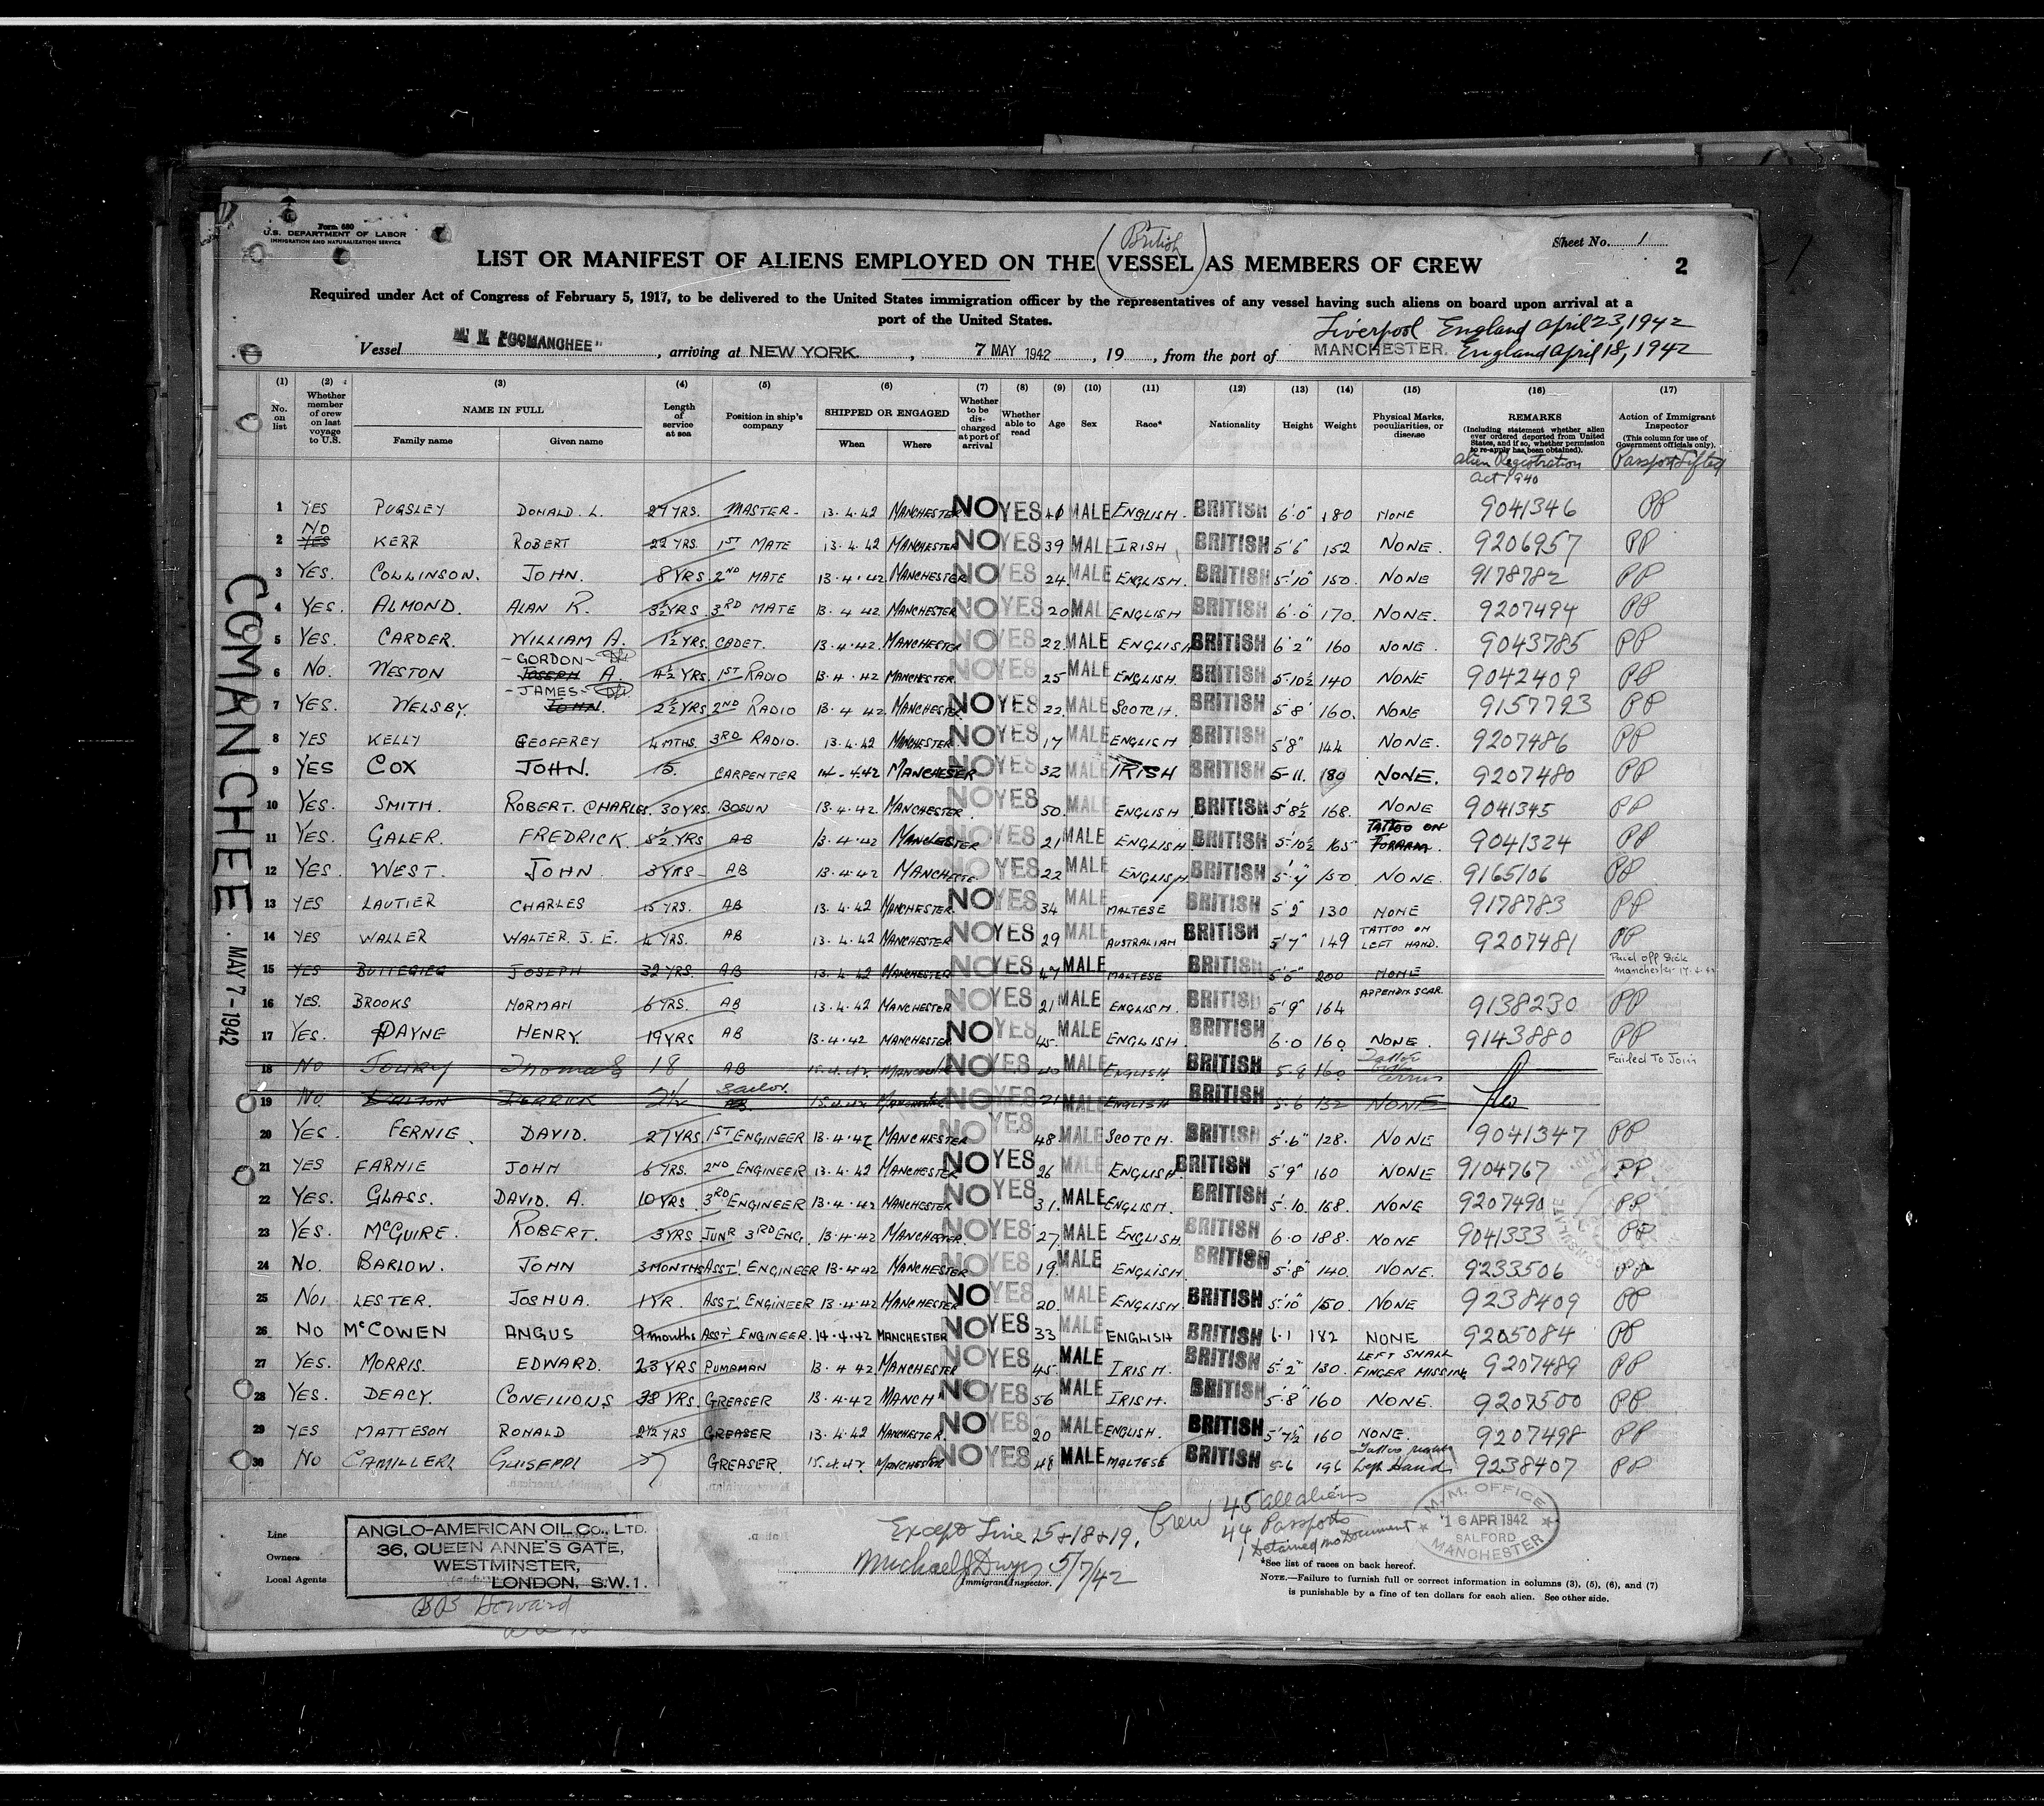 Form 680
U.S. DEPARTMENT OF LABOR
IMMIGRATION AND NATURALIZATION SERVICE
Sheet No. 1
British
LIST OR MANIFEST OF ALIENS EMPLOYED ON THE (VESSEL) AS MEMBERS OF CREW
2
Required under Act of Congress of February 5, 1917, to be delivered to the United States immigration officer by the representatives of any vessel having such aliens on board upon arrival at a
port of the United States.
Liverpool England April 23, 1942
Vessel "COMANCHEE", arriving at NEW YORK, 7 MAY 1942, 19, from the port of MANCHESTER. England April 18, 1942
(1) (2) (3) (4) (5) (6) (7) (8) (9) (10) (11) (12) (13) (14) (15) (16) (17)
No. on list
Whether member of crew on last voyage to U.S.
NAME IN FULL
Family name Given name
Length of service at sea
Position in ship's company
SHIPPED OR ENGAGED
When Where
Whether to be discharged at port of arrival
Whether able to read
Age Sex Race* Nationality Height Weight
Physical Marks, peculiarities, or disease
REMARKS
(Including statement whether alien ever ordered deported from United States, and if so, whether permission to re-apply has been obtained).
Alien Registration Act 1940
Action of Immigrant Inspector
(This column for use of Government officials only).
Passport Lifted
1 YES PUGSLEY DONALD. L. 27 YRS. MASTER. 13.4.42 MANCHESTER NO YES 40 MALE ENGLISH. BRITISH 6'0" 180 NONE 9041346 PP
2 NO YES KERR ROBERT 22 YRS. 1ST MATE 13.4.42 MANCHESTER NO YES 39 MALE IRISH BRITISH 5'6" 152 NONE. 9206957 PP
3 YES. COLLINSON. JOHN. 8 YRS. 2ND MATE 13.4.42 MANCHESTER NO YES 24. MALE ENGLISH. BRITISH 5'10" 150. NONE 9178782 PP
4 YES. ALMOND. ALAN R. 3½ YRS 3RD MATE 13.4.42 MANCHESTER NO YES 20 MAL ENGLISH BRITISH 6'.0" 170. NONE. 9207494 PP
5 YES. CARDER. WILLIAM A. 1½ YRS. CADET. 13.4.42. MANCHESTER NO YES 22. MALE ENGLISH BRITISH 6'2" 160 NONE. 9043785 PP
6 NO. WESTON -GORDON- JOSEPH A. 4½ YRS. 1ST RADIO 13.4.42 MANCHESTER. NO YES 25 MALE ENGLISH. BRITISH 5-10½ 140 NONE 9042409 PP
7 YES. WELSBY. -JAMES- JOHN. 2½ YRS 2ND RADIO 13.4.42. MANCHESTER NO YES 22. MALE SCOTCH. BRITISH 5'8' 160. NONE 9157793 PP
8 YES KELLY GEOFFREY 4 MTHS. 3RD RADIO. 13.4.42 MANCHESTER NO YES 17 MALE ENGLISH BRITISH 5'8" 144 NONE. 9207486 PP
9 YES COX JOHN. 15. CARPENTER 14-4.42 MANCHESTER NO YES 32 MALE IRISH BRITISH 5-11. 180 NONE. 9207480 PP
10 YES. SMITH. ROBERT. CHARLES. 30 YRS. BOSUN 13.4.42. MANCHESTER. NO YES 50. MALE ENGLISH BRITISH 5'8½ 168. NONE 9041345 PP
11 YES. GALER. FREDRICK. 5½ YRS AB 13.4.42 MANCHESTER NO YES 21 MALE ENGLISH. BRITISH 5'-10½ 165 TATTOO ON FORARM. 9041324 PP
12 YES. WEST. JOHN 3 YRS- AB 13.4.42 MANCHESTE NO YES 22 MALE ENGLISH. BRITISH 150 NONE. 9165106 PP
13 YES LAUTIER CHARLES 15 YRS. AB 13.4.42 MANCHESTER. NO YES 34 MALE MALTESE BRITISH 5'2" 130 NONE 9178783 PP
14 YES WALLER WALTER. J. E. 4 YRS. AB 13.4.42 MANCHESTER. NO YES 29 MALE AUSTRALIAN BRITISH 5'7" 149 TATTOO ON LEFT HAND. 9207481 PP
15 YES BUTTEGIEG JOSEPH 32 YRS. AB 13.4.42 MANCHESTER NO YES 47 MALE MALTESE BRITISH 5'6" 200 NONE Paid off Sick Manchester 17.4.42
16 YES. BROOKS NORMAN 6 YRS. AB 13.4.42 MANCHESTER. NO YES 21 MALE ENGLISH. BRITISH 5'9" 164 APPENDIX SCAR 9138230 PP
17 YES. PAYNE HENRY. 19 YRS AB 13.4.42 MANCHESTER NO YES 45. MALE ENGLISH. BRITISH 6.0 160 NONE. 9143880 PP
18 NO Thomas 18 AB 15.4.42 MANCHESTER NO YES 40 MALE ENGLISH BRITISH 5-8 160 Tattoo Arms Failed To Join
19 NO DERRICK 2½ Sailor. AB 15.4.42 MANCHESTER NO YES 21 MALE ENGLISH BRITISH 5-6 132 NONE
20 YES. FERNIE. DAVID. 27 YRS. 1ST ENGINEER 13.4.42 MANCHESTER NO YES 48. MALE SCOTCH. BRITISH 5'.6" 128. NONE 9041347 PP
21 YES FARNIE JOHN 6 YRS. 2ND ENGINEER 13.4.42 MANCHESTER NO YES 26 MALE ENGLISH. BRITISH 5'9" 160 NONE 9104767 PP
22 YES. GLASS. DAVID. A. 10 YRS. 3RD ENGINEER 13.4.42 MANCHESTER NO YES 31. MALE ENGLISH. BRITISH 5'.10. 168. NONE 9207490 PP
23 YES. McGUIRE. ROBERT. 3 YRS JUNR 3RD ENG. 13.4.42 MANCHESTER NO YES 27 MALE ENGLISH. BRITISH 6.0 188. NONE 9041333 PP
24 NO. BARLOW. JOHN 3 MONTHS ASST. ENGINEER 13.4.42 MANCHESTER NO YES 19. MALE ENGLISH. BRITISH 5'.8" 140. NONE. 9233506 PP
25 NO. LESTER. JOSHUA. 1 YR. ASST. ENGINEER 13.4.42 MANCHESTER NO YES 20. MALE ENGLISH. BRITISH 5'10" 150. NONE 9238409 PP
26 NO McCOWEN ANGUS 9 months ASST. ENGINEER. 14.4.42 MANCHESTER NO YES 33 MALE ENGLISH BRITISH 6.1 182 NONE 9205084 PP
27 YES. MORRIS. EDWARD. 23 YRS PUMPMAN 13.4.42. MANCHESTER NO YES 45. MALE IRISH. BRITISH 5'.2" 130. LEFT SMALL FINGER MISSING 9207489 PP
28 YES. DEACY. CONEILIOUS 38 YRS. GREASER 13.4.42 MANCH NO YES 56 MALE IRISH. BRITISH 5'.8" 160 NONE. 9207500 PP
29 YES MATTESON RONALD 2½ YRS GREASER 13.4.42 MANCHESTER. NO YES 20 MALE ENGLISH. BRITISH 5'7½ 160 NONE. 9207498 PP
30 NO CAMILLERI GUISEPPI 27 GREASER. 15.4.42 MANCHESTER NO YES 48 MALE MALTESE BRITISH 5-6 196 Tattoo right Left Hand 9238407 PP
COMANCHEE. MAY 7-1942
Line
Owners
Local Agents
ANGLO-AMERICAN OIL Co., LTD.
36, QUEEN ANNE'S GATE,
WESTMINSTER,
LONDON, S.W.1.
BB Howard
Except Line 15+18+19.
Michael J Dwyer 5/7/42
Immigrant Inspector.
Crew 45 all aliens
44 Passports
1 Detained no Document
M.M. OFFICE
16 APR 1942
SALFORD
MANCHESTER
*See list of races on back hereof.
NOTE.—Failure to furnish full or correct information in columns (3), (5), (6), and (7)
is punishable by a fine of ten dollars for each alien. See other side.